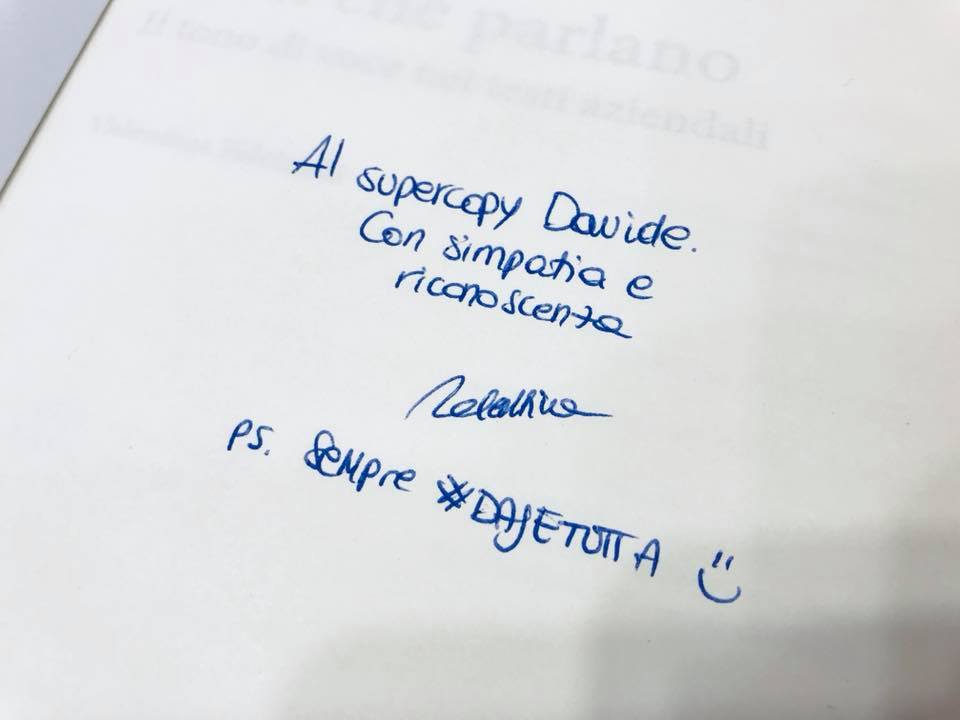 che parlano
Il tono di voce nei testi aziendali
Al supercopy Davide.
Con simpatia e
riconoscenza
PS. Sempre #DAJETUTTA